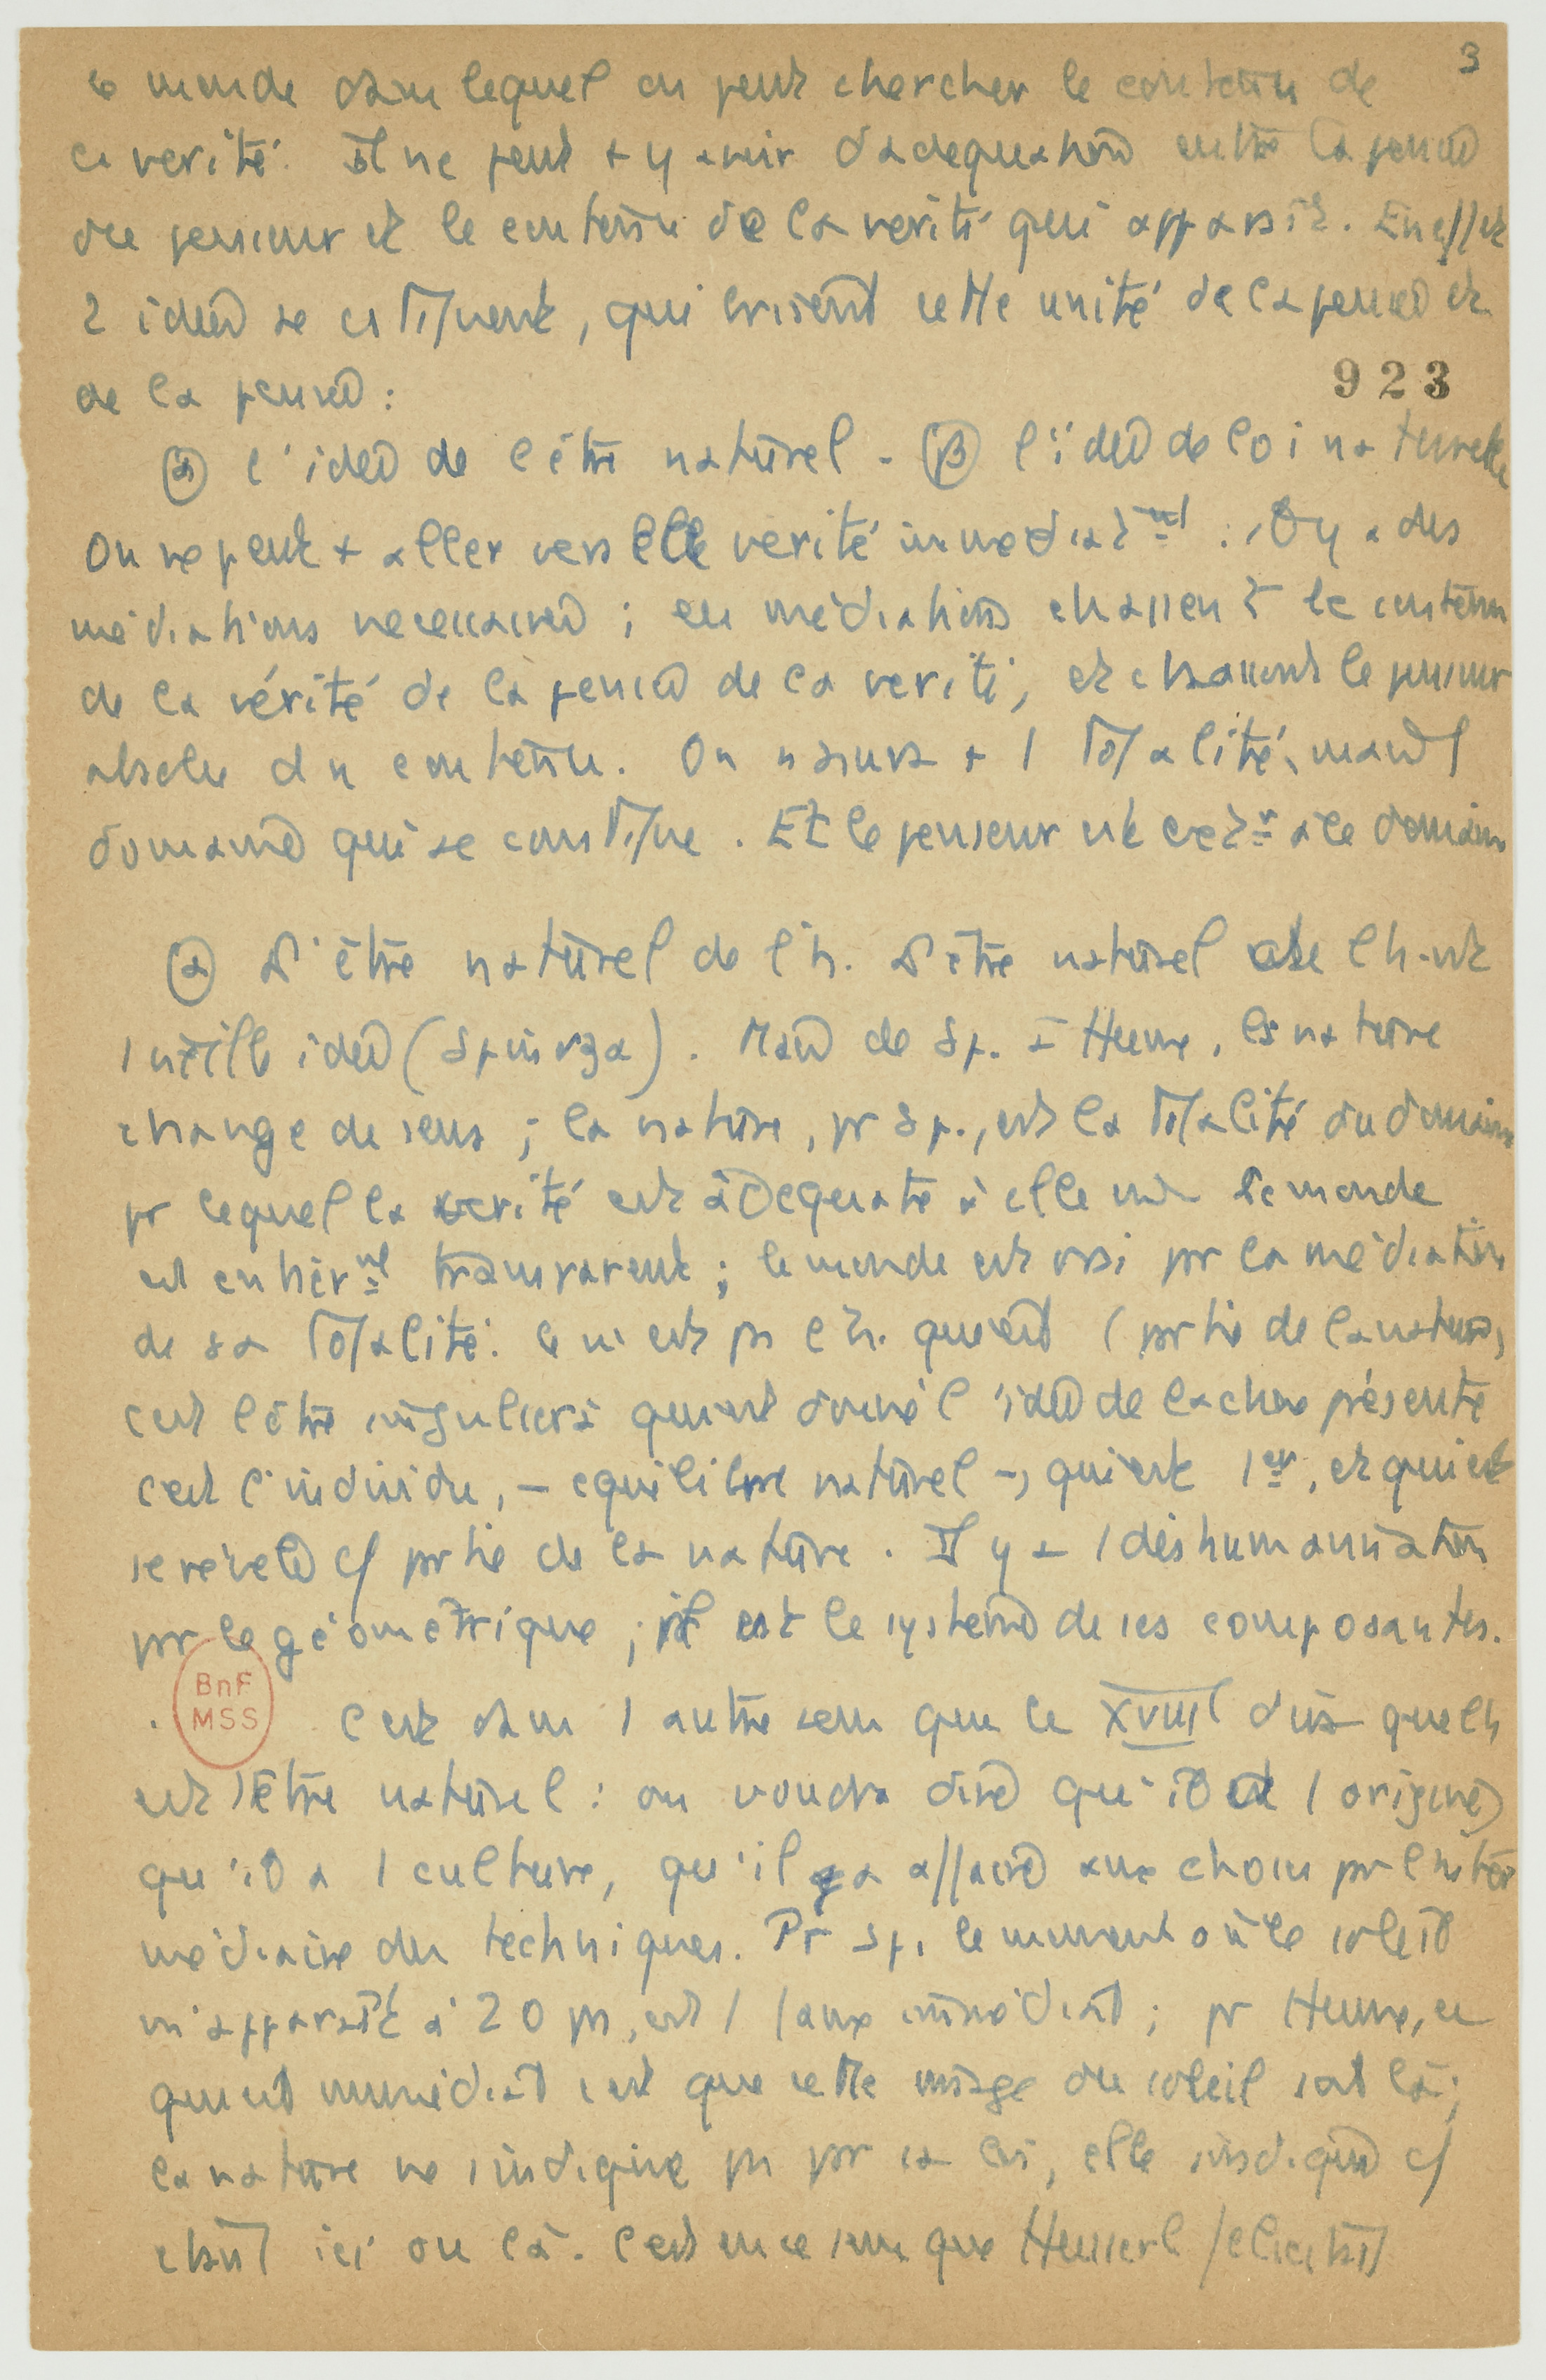 3
le monde dans lequel on peut chercher le contenu de
ce vérité. Il ne peut + y avoir d'adéquation entre la pensée
du penseur et le contenu de la vérité qui apparaît. En effet
2 idées se cstituent, qui brisent cette unité de la pensée et
de la pensée :
923
(α) l'idée de l'être naturel - (β) l'idée de loi naturelle
On ne peut + aller vers elle vérité immédiatmt : il y a des
médiations nécessaires ; ces médiations chassent le contenu
de la vérité de la pensée de la vérité, et chassent le penseur
absolu du contenu. On n'aura + 1 totalité, mais 1
domaine qui se constitue. Et le penseur est à ce domaine
(α) L'être naturel de l'h. L'être naturel de l'h. est
1 vieille idée (Spinoza). Mais de Sp. à Hume, la nature
change de sens ; la nature, pr Sp., est la totalité du domaine
pr lequel la vérité est adéquate à elle-m. Le monde
est entièrmt transparent ; le monde est vrai par la médiation
de sa totalité. Ce n'est pas l'h. qui est 1 partie de la nature,
c'est l'être singulier à qui est donné l'idée de la chose présente
c'est l'individu, - équilibre naturel -, qui est 1er, et qui est
se révèle c/ partie de la nature. Il y a 1 déshumanisation
par le géométrique ; il est le système de ses composantes.
BnF
MSS
C'est dans 1 autre sens que le XVIII dira que l'h
est 1 être naturel : on voudra dire qu'il a 1 origine,
qu'il a 1 culture, qu'il a affaire aux choses par l'inter
médiaire des techniques. Pr Sp. le moment où le soleil
m'apparaît à 20 pas, est 1 faux immédiat ; pr Hume, ce
qui est immédiat c'est que cette image du soleil soit là ;
la nature ne s'indique pas par sa loi, elle s'indique c/
étant ici ou là. C'est en ce sens que Husserl félicitait